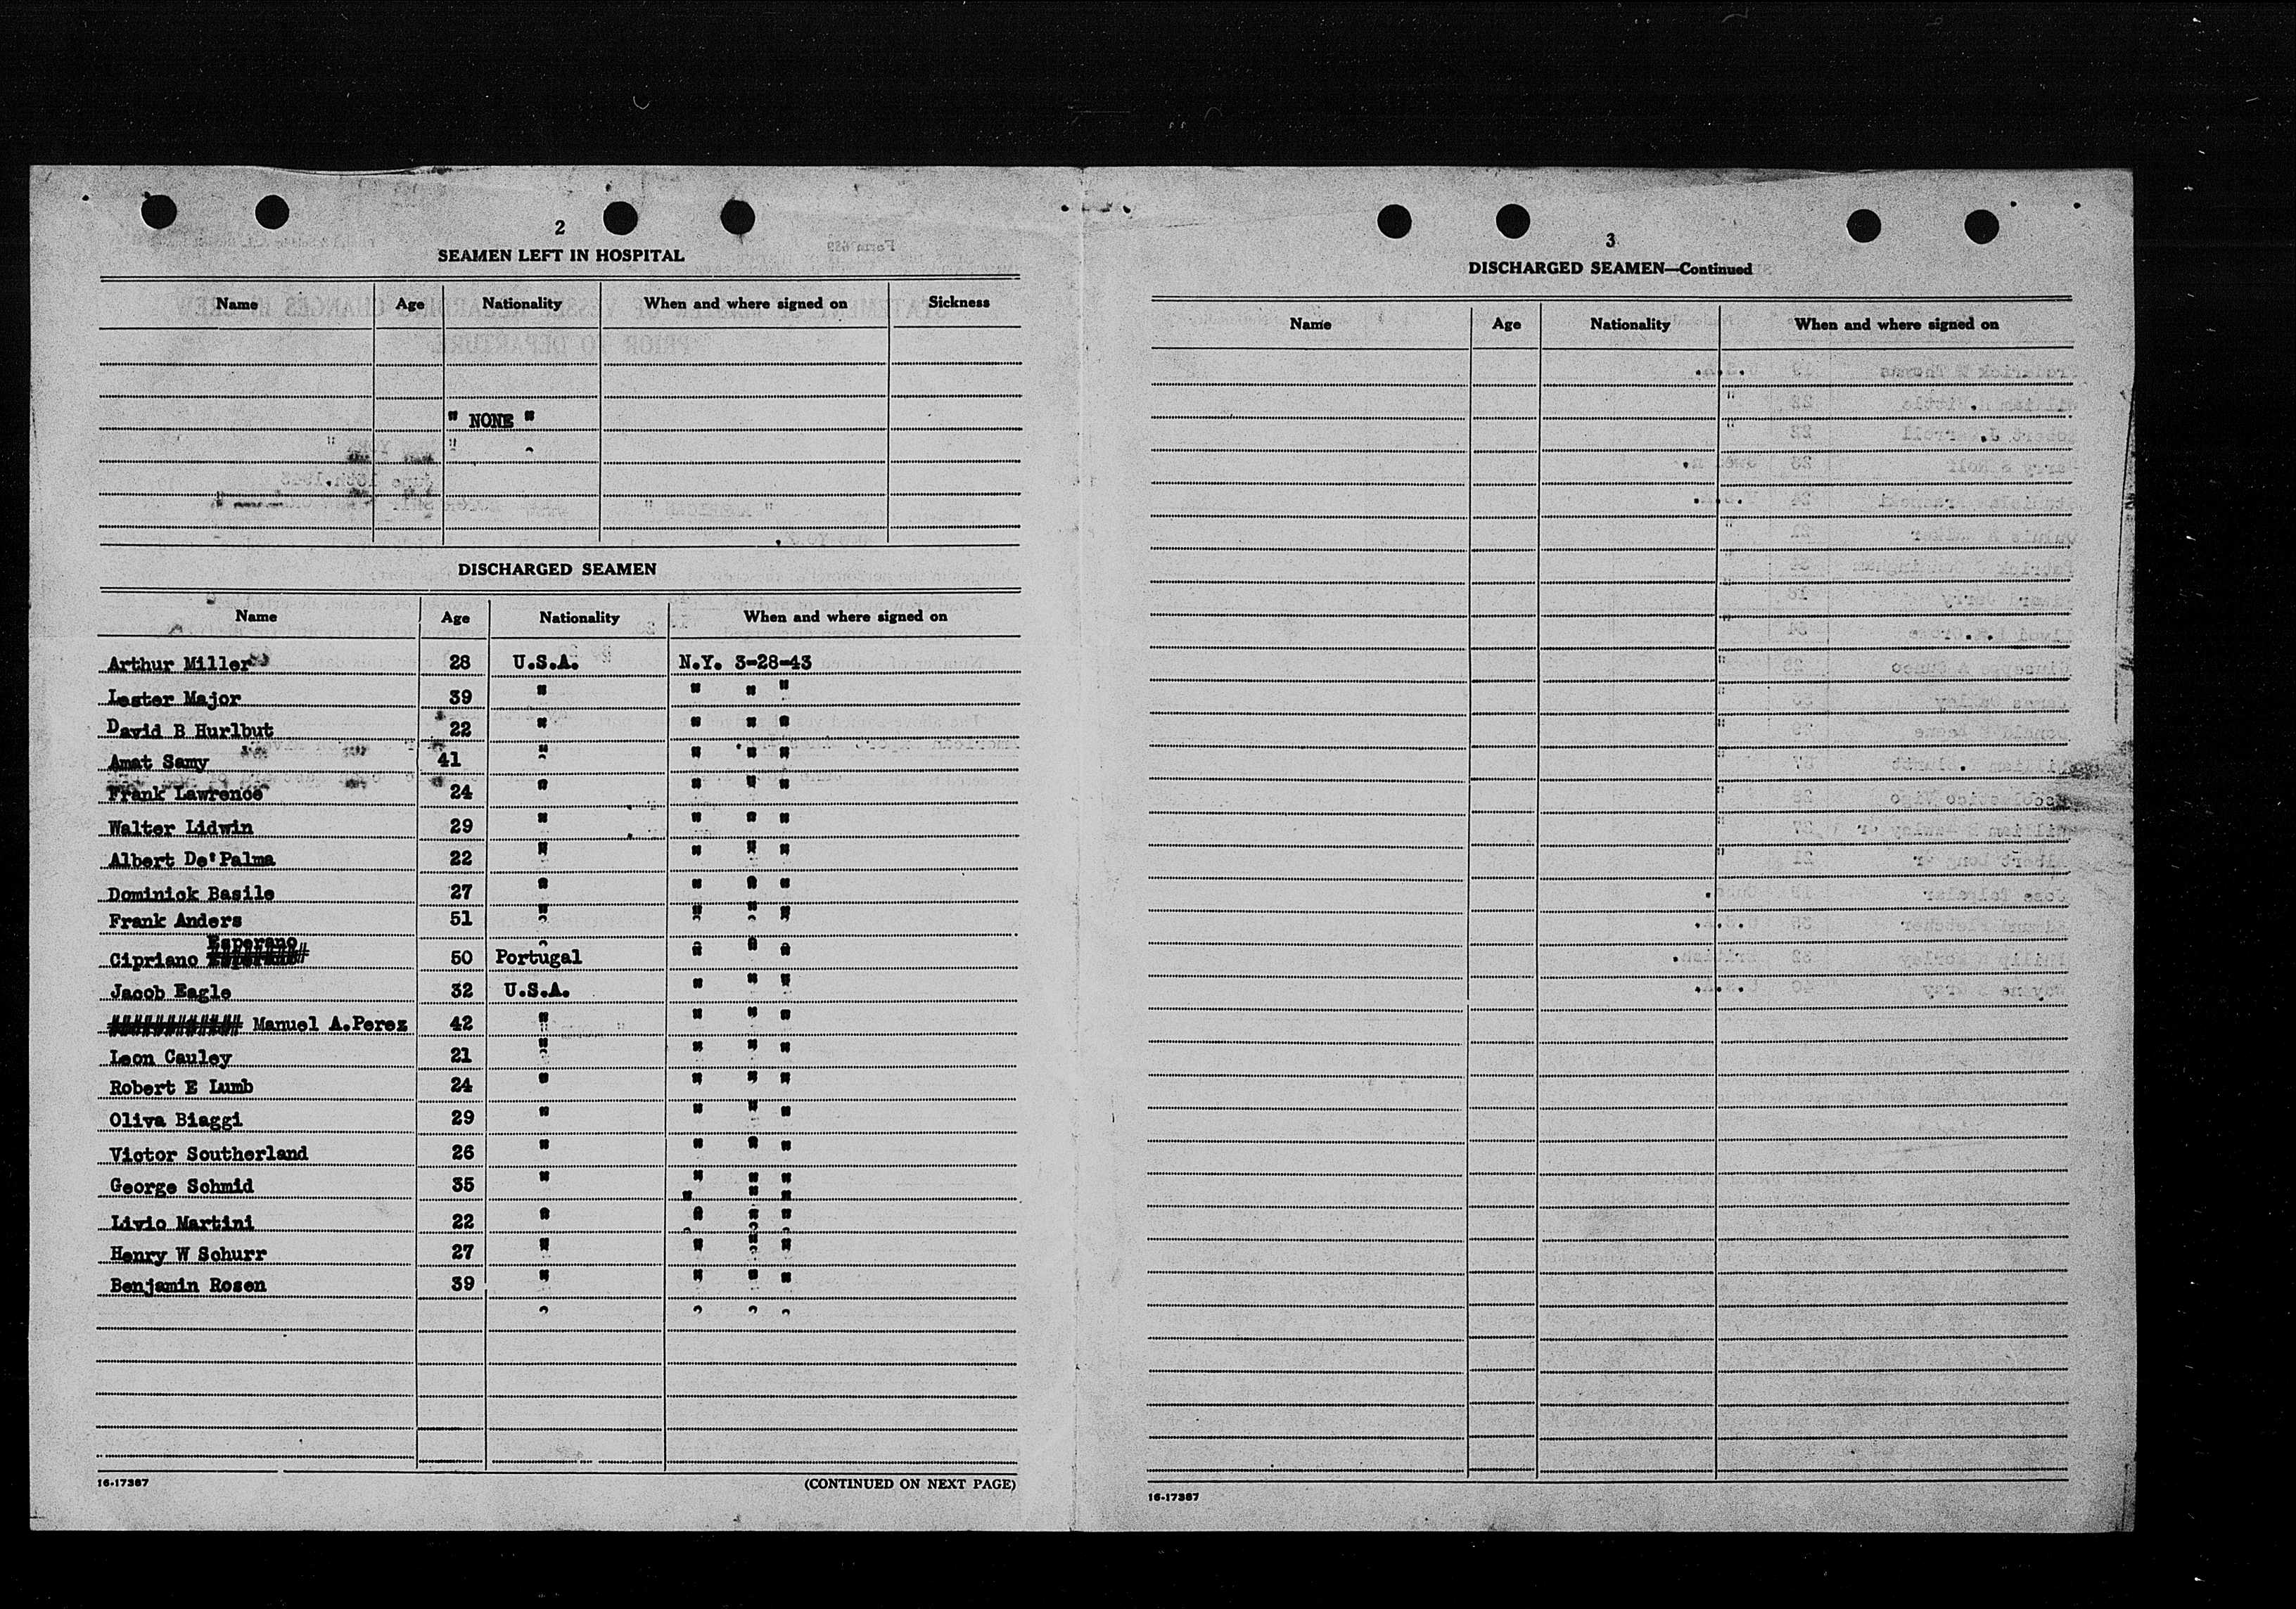 2
SEAMEN LEFT IN HOSPITAL
Name Age Nationality When and where signed on Sickness
" NONE "
DISCHARGED SEAMEN
Name Age Nationality When and where signed on
Arthur Miller 28 U.S.A. N.Y. 3-28-43
Lester Major 39 " " " "
David B Hurlbut 22 " " " "
Amat Samy 41 " " " "
Frank Lawrence 24 " " " "
Walter Lidwin 29 " " " "
Albert De'Palma 22 " " " "
Dominick Basile 27 " " " "
Frank Anders 51 " " " "
Esperano
Cipriano 50 Portugal " " "
Jacob Eagle 32 U.S.A. " " "
Manuel A.Perez 42 " " " "
Leon Cauley 21 " " " "
Robert E Lumb 24 " " " "
Oliva Biaggi 29 " " " "
Victor Southerland 26 " " " "
George Schmid 35 " " " "
Livio Martini 22 " " " "
Henry W Schurr 27 " " " "
Benjamin Rosen 39 " " " "
16-17367 (CONTINUED ON NEXT PAGE)
3
DISCHARGED SEAMEN—Continued
Name Age Nationality When and where signed on
16-17367